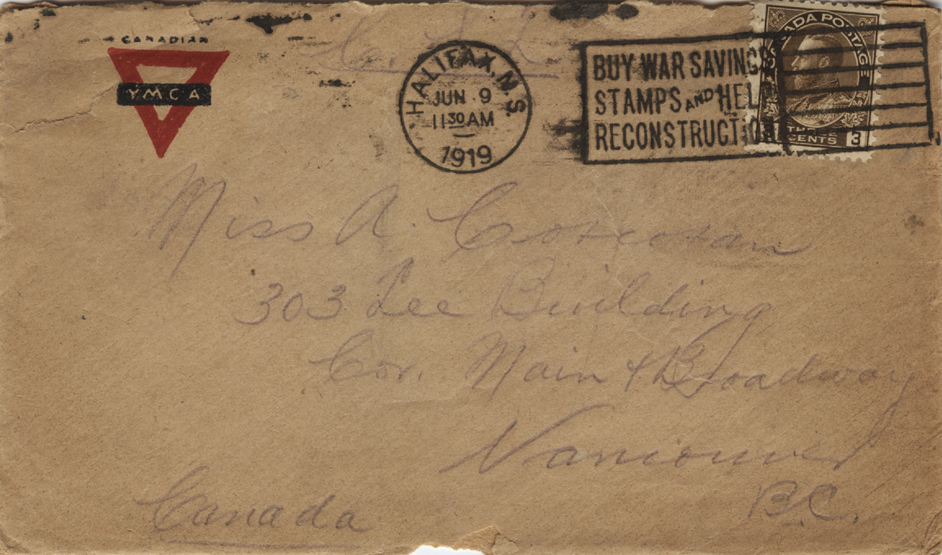 CANADIAN
YMCA
HALIFAX, N.S.
JUN 9
11 30 AM
1919
BUY WAR SAVINGS
STAMPS AND HELP
RECONSTRUCTION
CANADA POSTAGE
CENTS 3
Miss A Corcoran
303 Lee Building
Cor. Main & Broadway
Vancouver
B.C.
Canada